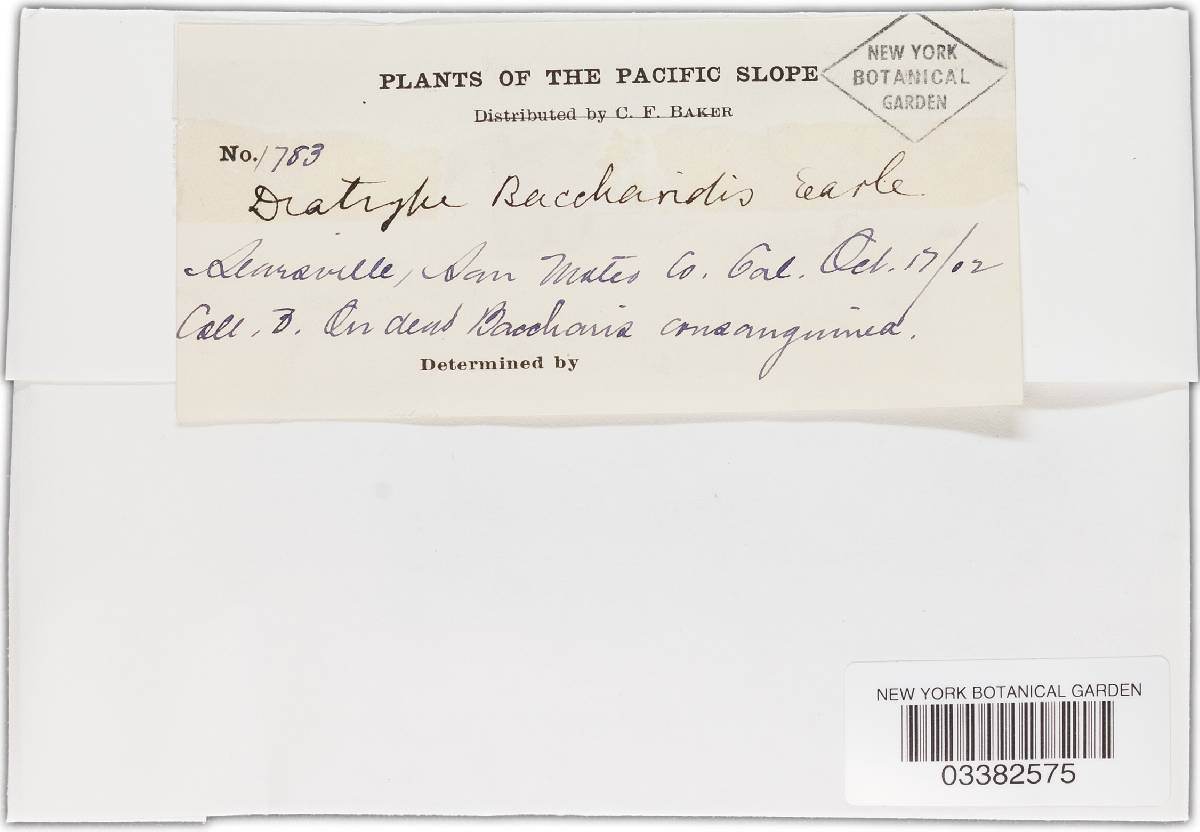 PLANTS OF THE PACIFIC SLOPE
Distributed by C. F. BAKER
NEW YORK
BOTANICAL
GARDEN
No. 1783
Diatrype Baccharidis Earle
Searsville, San Mateo Co. Cal. Oct. 17/02
Coll. B. On dead Baccharis consanguinea.
Determined by
NEW YORK BOTANICAL GARDEN
03382575